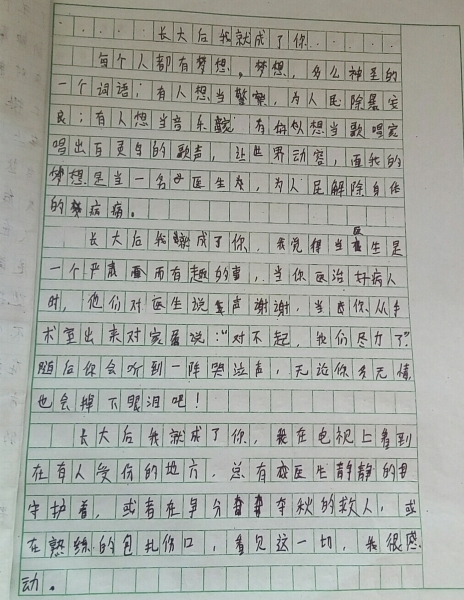 长大后我就成了你
每个人都有梦想，梦想，多么神圣的
一个词语；有人想当警察，为人民除暴安
良；有人想当音乐家 有人想当歌唱家
唱出百灵鸟的歌声，让世界动容，而我的
梦想是当一名医生，为人民解除身体
的病痛。
长大后我就成了你，我觉得当医生是
一个严肃而有趣的事，当你医治好病人
时，他们对医生说声谢谢，当你从手
术室出来对家属说："对不起，我们尽力了"
随后你会听到一阵哭泣声，无论你多无情，
也会掉下眼泪吧！
长大后我就成了你，我在电视上看到
在有人受伤的地方，总有医生静静的
守护着，或者在争分夺秋的救人，或
在熟练的包扎伤口，看见这一切，我很感
动。